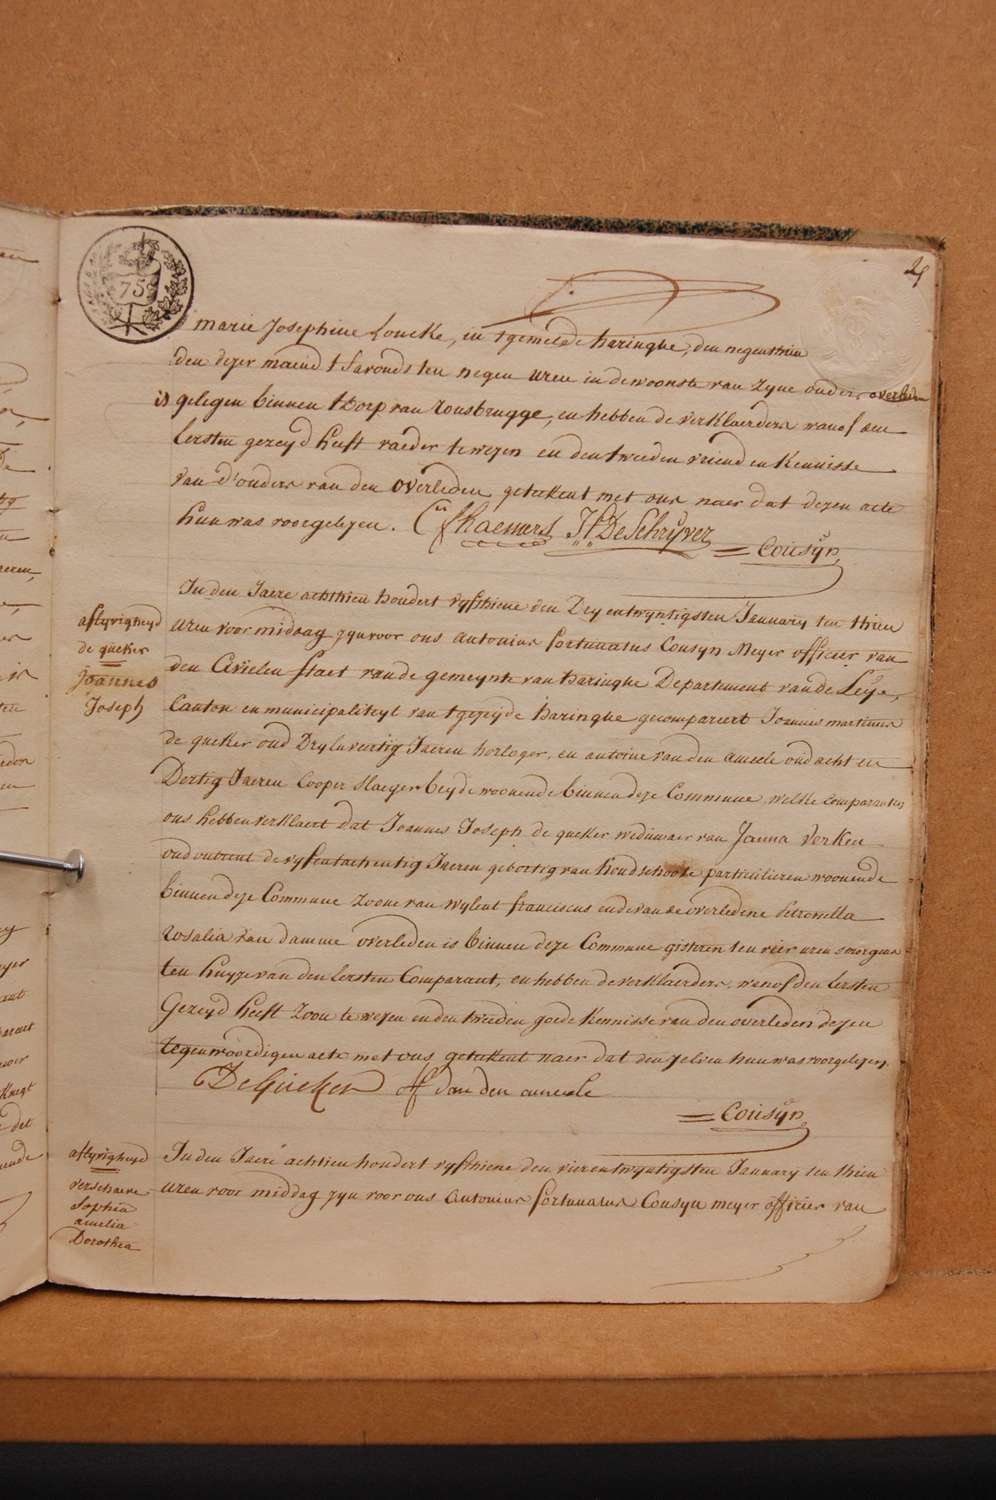 75
25
marie Josephine Loncke, in t gemelde haringhe, den negenthien
den dezer maend t savonds ten negen uren in de woonste van zyne ouders overleden
is gelegen binnen t dorp van rousbrugge, en hebben de verklaerders wanof den
Eersten gezeyd heeft vaeder te wezen en den tweeden vriend en kennisse
van d'ouders van den overleden, geteekent met ons naer dat dezen acte
hun was voorgelezen. DeSchryver
Cousyn
In den Jaere achthien hondert vyfthiene den Dry en twyntigsten January ten thien
uren voor middag zyn voor ons Antonius fortunatus Cousyn Meyer officier van
den Civielen staet van de gemeynte van Haringhe Departement van de Leÿe,
Canton en municipaliteyt van t gezeyde Haringhe gecompareert Joannes martinus
de queker oud Dry en veertig Jaeren horloger, en antoine van den ameele oud acht en
Dertig Jaeren Cooper slaeger beyde woonende binnen deze Commune, welke comparanten
ons hebben verklaert dat Joannes Joseph de queker weduwaer van Janna Verken
oud ontrent de vyf en tachentig Jaeren gebortig van hondschoote particulieren woonende
binnen deze Commune zoone van wylent franciscus ende van de overledene petronella
rosalia van damme overleden is binnen deze Commune gisteren ten vier uren smorgens
ten huyze van den Eersten Comparant, en hebben de verklaerders, wanof den Eersten
Gezeyd heeft zoon te wezen en den tweeden goede kennisse van den overleden dezen
tegenwoordigen acte met ons geteekent naer dat den zelven hun was voorgelezen
DeQueker Van den ameele
Cousyn
aflyvigheyd
de queker
Joannes
Joseph
aflyvigheyd
verschaeve
Sophia
amelia
Dorothea
In den Jaere achtien hondert vyfthiene den vier en twyntigsten January ten thien
uren voor middag zyn voor ons Antonius fortunatus Cousyn meyer officier van